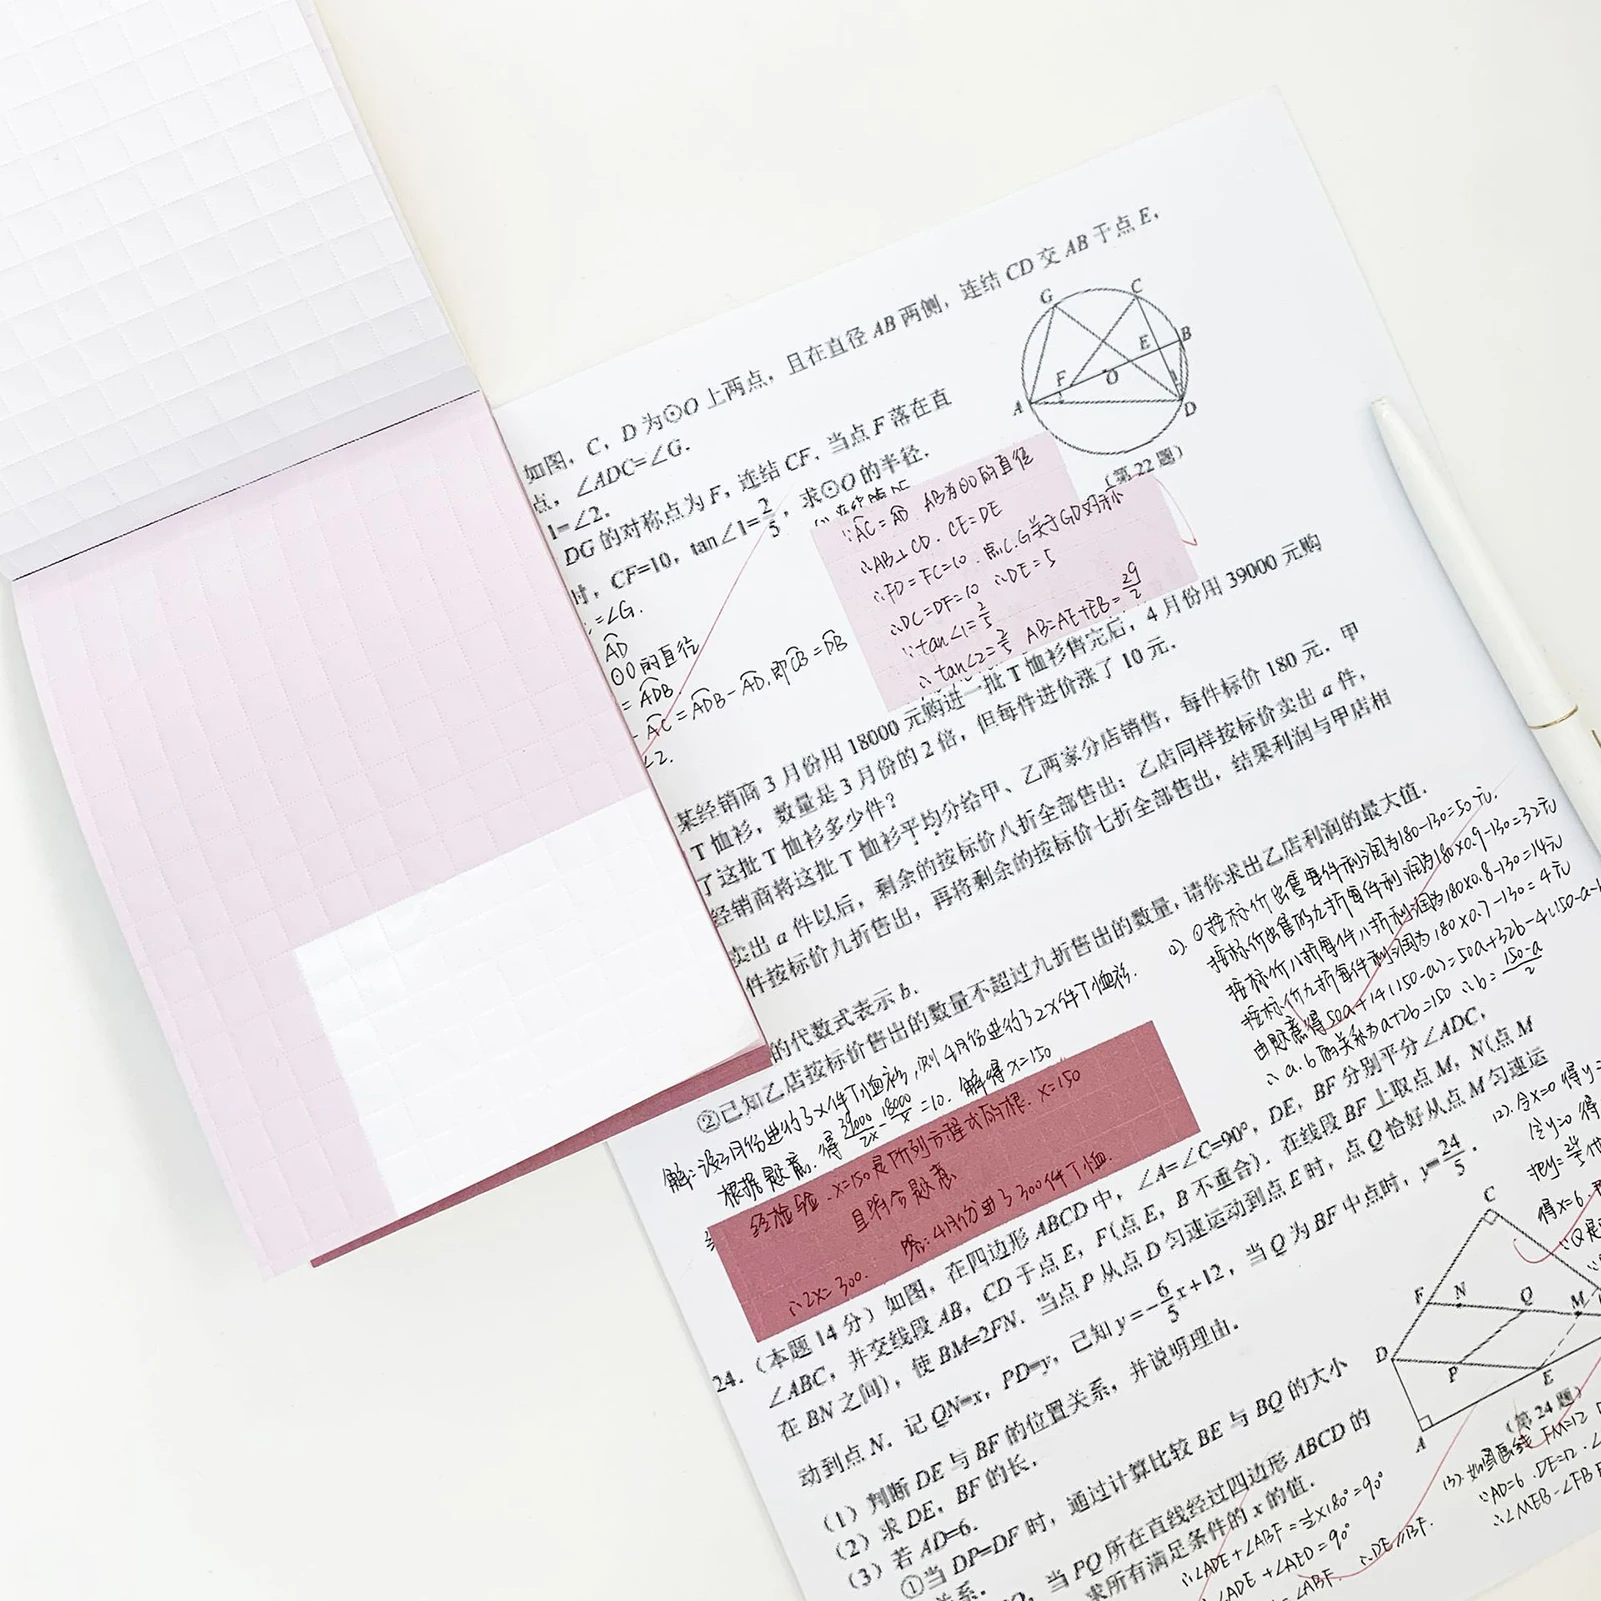 如图，C，D 为⊙O 上两点，且在直径 AB 两侧，连结 CD 交 AB 于点 E，
点，∠ADC=∠G.
1=∠2.
DG 的对称点为 F，连结 CF. 当点 F 落在直
时，CF=10，tan∠1=2/5，求⊙O 的半径.
G
C
E
B
F
O
A
D
1
（第 22 题）
=∠G.
AD
⊙O的直径
= ADB
- AC = ADB - AD. 即CB = DB
∠2.
∵AC = AD AB为⊙O的直径
∴AB⊥CD. CE=DE
∴FD=FC=10. 点C.G关于GD对称
∴DC=DF=10 ∴DE=5
∵tan∠1=2/5
∴tan∠2=2/5 AB=AE+EB=29/2
某经销商 3 月份用 18000 元购进一批 T 恤衫售完后，4 月份用 39000 元购
T 恤衫，数量是 3 月份的 2 倍，但每件进价涨了 10 元.
了这批 T 恤衫多少件？
经销商将这批 T 恤衫平均分给甲、乙两家分店销售，每件标价 180 元. 甲
卖出 a 件以后，剩余的按标价八折全部售出；乙店同样按标价卖出 a 件，
件按标价九折售出，再将剩余的按标价七折全部售出，结果利润与甲店相
的代数式表示 b.
②已知乙店按标价售出的数量不超过九折售出的数量，请你求出乙店利润的最大值.
解：设3月份进了x件T恤衫，则4月份进了2x件T恤衫.
根据题意. 得 39000/2x - 18000/x =10. 解得x=150
经检验. x=150是所列方程式的根. x=150
且符合题意
∴2x=300. 答：4月份进了300件T恤.
2). ①按标价出售每件利润为180-130=50元.
按标价出售的九折每件利润为180×0.9-130=32元
按标价八折每件八折利润为180×0.8-130=14元
按标价九折每件利润为180×0.7-130=4元
由题意得50a+14(150-a)=50a+32b-4(150-a-
∴a.b的关系为a+2b=150 ∴b=(150-a)/2
24.（本题 14 分）如图，在四边形 ABCD 中，∠A=∠C=90°，DE，BF 分别平分∠ADC，
∠ABC，并交线段 AB，CD 于点 E，F（点 E，B 不重合）. 在线段 BF 上取点 M，N（点 M
在 BN 之间），使 BM=2FN. 当点 P 从点 D 匀速运动到点 E 时，点 Q 恰好从点 M 匀速运
动到点 N. 记 QN=x，PD=y，已知 y=-6/5x+12，当 Q 为 BF 中点时，y=24/5.
（1）判断 DE 与 BF 的位置关系，并说明理由.
（2）求 DE，BF 的长.
（3）若 AD=6.
①当 DP=DF 时，通过计算比较 BE 与 BQ 的大小
关系.
当 PQ 所在直线经过四边形 ABCD 的
求所有满足条件的 x 的值.
12). 令x=0 得y=
令y=0 得
得x=6.
C
F
N
Q
M
D
P
E
A
（第 24 题）
∴∠ADE+∠ABF=½×180°=90°
∠ADE+∠AED=90°
=∠ABF. ∴DE∥BF.
(3). 如图连线 FM=12
∵AD=6. DE=12.